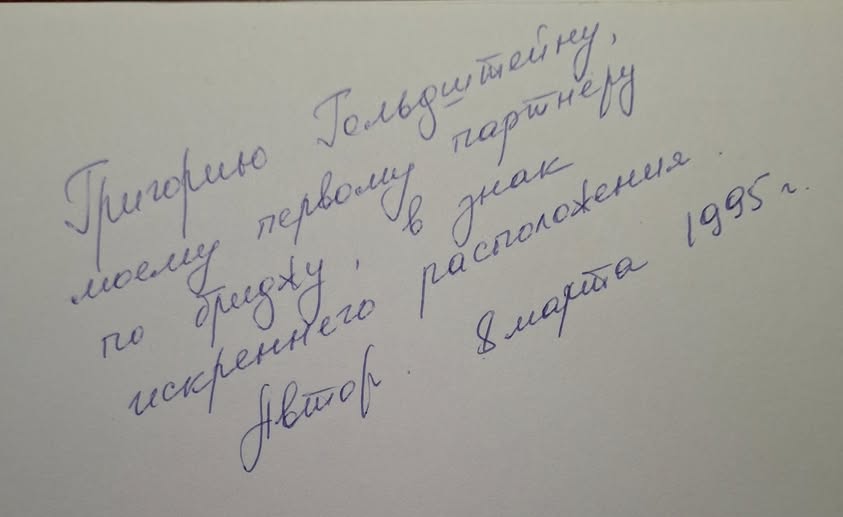 Григорию Гольдштейну,
моему первому партнеру
по бриджу, в знак
искреннего расположения.
Автор. 8 марта 1995 г.